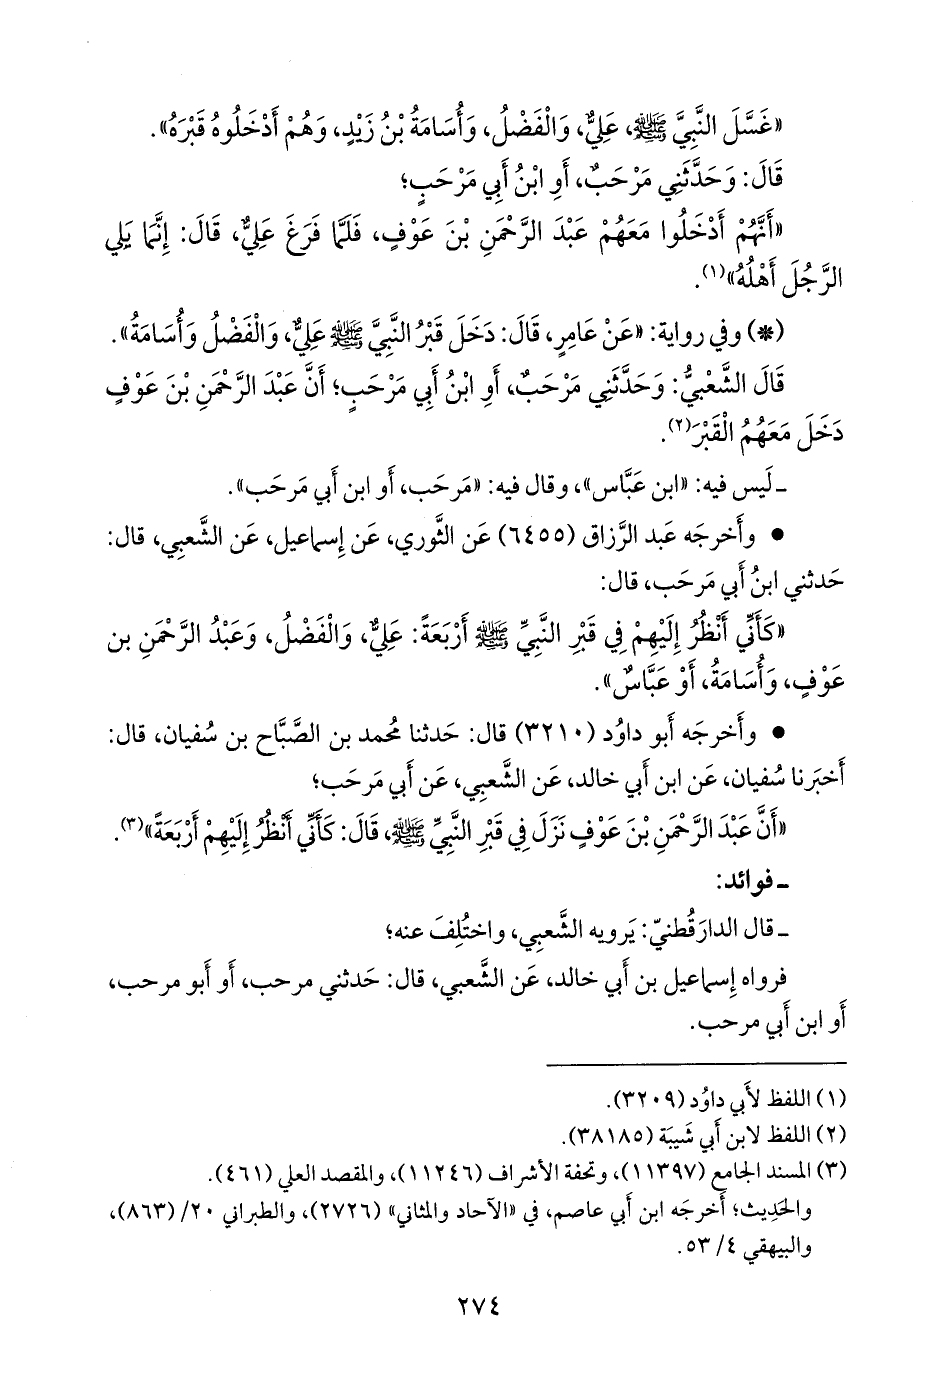 «غَسَّلَ النَّبِيَّ ﷺ، عَلِيٌّ، وَالْفَضْلُ، وَأُسَامَةُ بْنُ زَيْدٍ، وَهُمْ أَدْخَلُوهُ قَبْرَهُ».
قَالَ: وَحَدَّثَنِي مَرْحَبٌ، أَوِ ابْنُ أَبِي مَرْحَبٍ؛
«أَنَّهُمْ أَدْخَلُوا مَعَهُمْ عَبْدَ الرَّحْمَنِ بْنَ عَوْفٍ، فَلَمَّا فَرَغَ عَلِيٌّ، قَالَ: إِنَّمَا يَلِي
الرَّجُلَ أَهْلُهُ»(١).
(*) وفي رواية: «عَنْ عَامِرٍ، قَالَ: دَخَلَ قَبْرُ النَّبِيَّ ﷺ عَلِيٌّ، وَالْفَضْلُ وَأُسَامَةُ».
قَالَ الشَّعْبِيُّ: وَحَدَّثَنِي مَرْحَبٌ، أَوِ ابْنُ أَبِي مَرْحَبٍ؛ أَنَّ عَبْدَ الرَّحْمَنِ بْنَ عَوْفٍ
دَخَلَ مَعَهُمُ الْقَبْرَ(٢).
ـ لَيس فيه: «ابن عَبَّاس»، وقال فيه: «مَرحَب، أَو ابن أَبي مَرحَب».
• وأَخرجَه عَبد الرَّزاق (٦٤٥٥) عَن الثَّوري، عَن إِسماعيل، عَن الشَّعبي، قال:
حَدثني ابنُ أَبي مَرحَب، قال:
«كَأَنِّي أَنْظُرُ إِلَيْهِمْ فِي قَبْرِ النَّبِيِّ ﷺ أَرْبَعَةً: عَلِيٌّ، وَالْفَضْلُ، وَعَبْدُ الرَّحْمَنِ بن
عَوْفٍ، وَأُسَامَةُ، أَوْ عَبَّاسٌ».
• وأَخرجَه أَبو داوُد (٣٢١٠) قال: حَدثنا مُحمد بن الصَّبَّاح بن سُفيان، قال:
أَخبَرنا سُفيان، عَن ابن أَبي خالد، عَن الشَّعبِي، عَن أَبي مَرحَب؛
«أَنَّ عَبْدَ الرَّحْمَنِ بْنَ عَوْفٍ نَزَلَ فِي قَبْرِ النَّبِيِّ ﷺ، قَالَ: كَأَنِّي أَنْظُرُ إِلَيْهِمْ أَرْبَعَةً»(٣).
ـ فوائد:
ـ قال الدارَقُطنيّ: يَرويه الشَّعبِي، واختُلِفَ عنه؛
فرواه إِسماعيل بن أَبي خالد، عَن الشَّعبي، قال: حَدثني مرحب، أَو أَبو مرحب،
أَو ابن أَبي مرحب.
(١) اللفظ لأَبي داوُد (٣٢٠٩).
(٢) اللفظ لابن أَبي شَيبَة (٣٨١٨٥).
(٣) المسند الجامع (١١٣٩٧)، وتحفة الأشراف (١١٢٤٦)، والمقصد العلي (٤٦١).
والحَدِيث؛ أَخرجَه ابن أَبي عاصم، في «الآحاد والمثاني» (٢٧٢٦)، والطبراني ٢٠/ (٨٦٣)،
والبيهقي ٤/ ٥٣.
٢٧٤